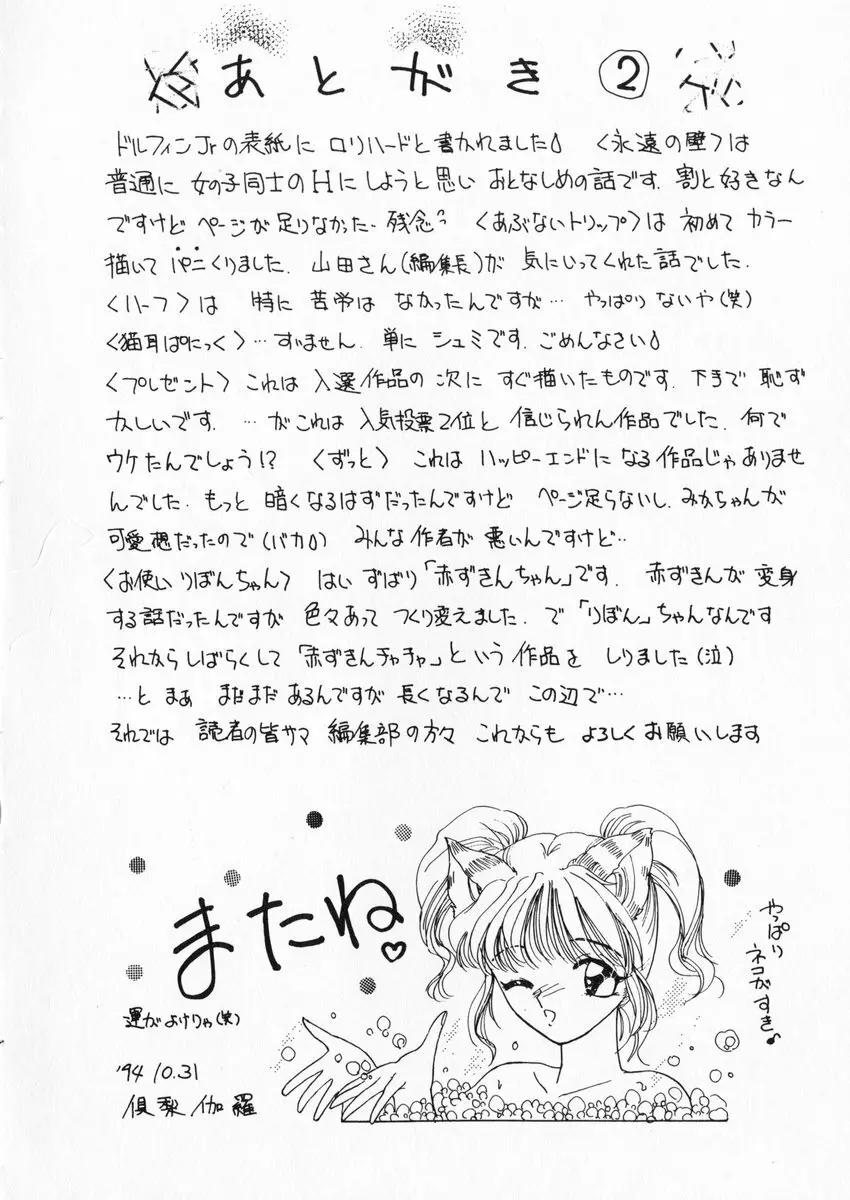 あとがき ②
ドルフィンJrの表紙に ロリハードと書かれました♪ 〈永遠の壁〉は
普通に 女の子同士のHにしようと思い おとなしめの話です. 割と好きなん
ですけど ページが足りなかった‥ 残念? 〈あぶないトリップ〉は 初めて カラー
描いて パニくりました. 山田さん(編集長)が 気にいってくれた話でした.
〈ハーフ〉は 特に 苦労は なかったんですが… やっぱり ないや(笑)
〈猫耳ぱにっく〉…すいません. 単に シュミです. ごめんなさい♪
〈プレゼント〉 これは 入選作品の 次に すぐ描いたものです. 下手で 恥ず
かしいです. …がこれは 人気投票2位と 信じられん作品でした. 何で
ウケたんでしょう!? 〈ずっと〉 これは ハッピーエンドに なる作品じゃ ありませ
んでした. もっと 暗くなるはずだったんですけど ページ足らないし. みかちゃんが
可愛想だったので(バカ♪) みんな 作者が 悪いんですけど‥
〈お使いりぼんちゃん〉 はい ずばり「赤ずきんちゃん」です. 赤ずきんが 変身
する話だったんですが 色々あって つくり変えました. で「りぼん」ちゃんなんです
それから しばらくして「赤ずきんチャチャ」という 作品を しりました(泣)
…と まぁ まだまだ あるんですが 長くなるんで この辺で…
それでは 読者の皆サマ 編集部の方々 これからも よろしくお願いします
またね♡
運がよけりゃ(笑)
'94 10.31
倶梨伽羅
やっぱり
ネコがすき♪